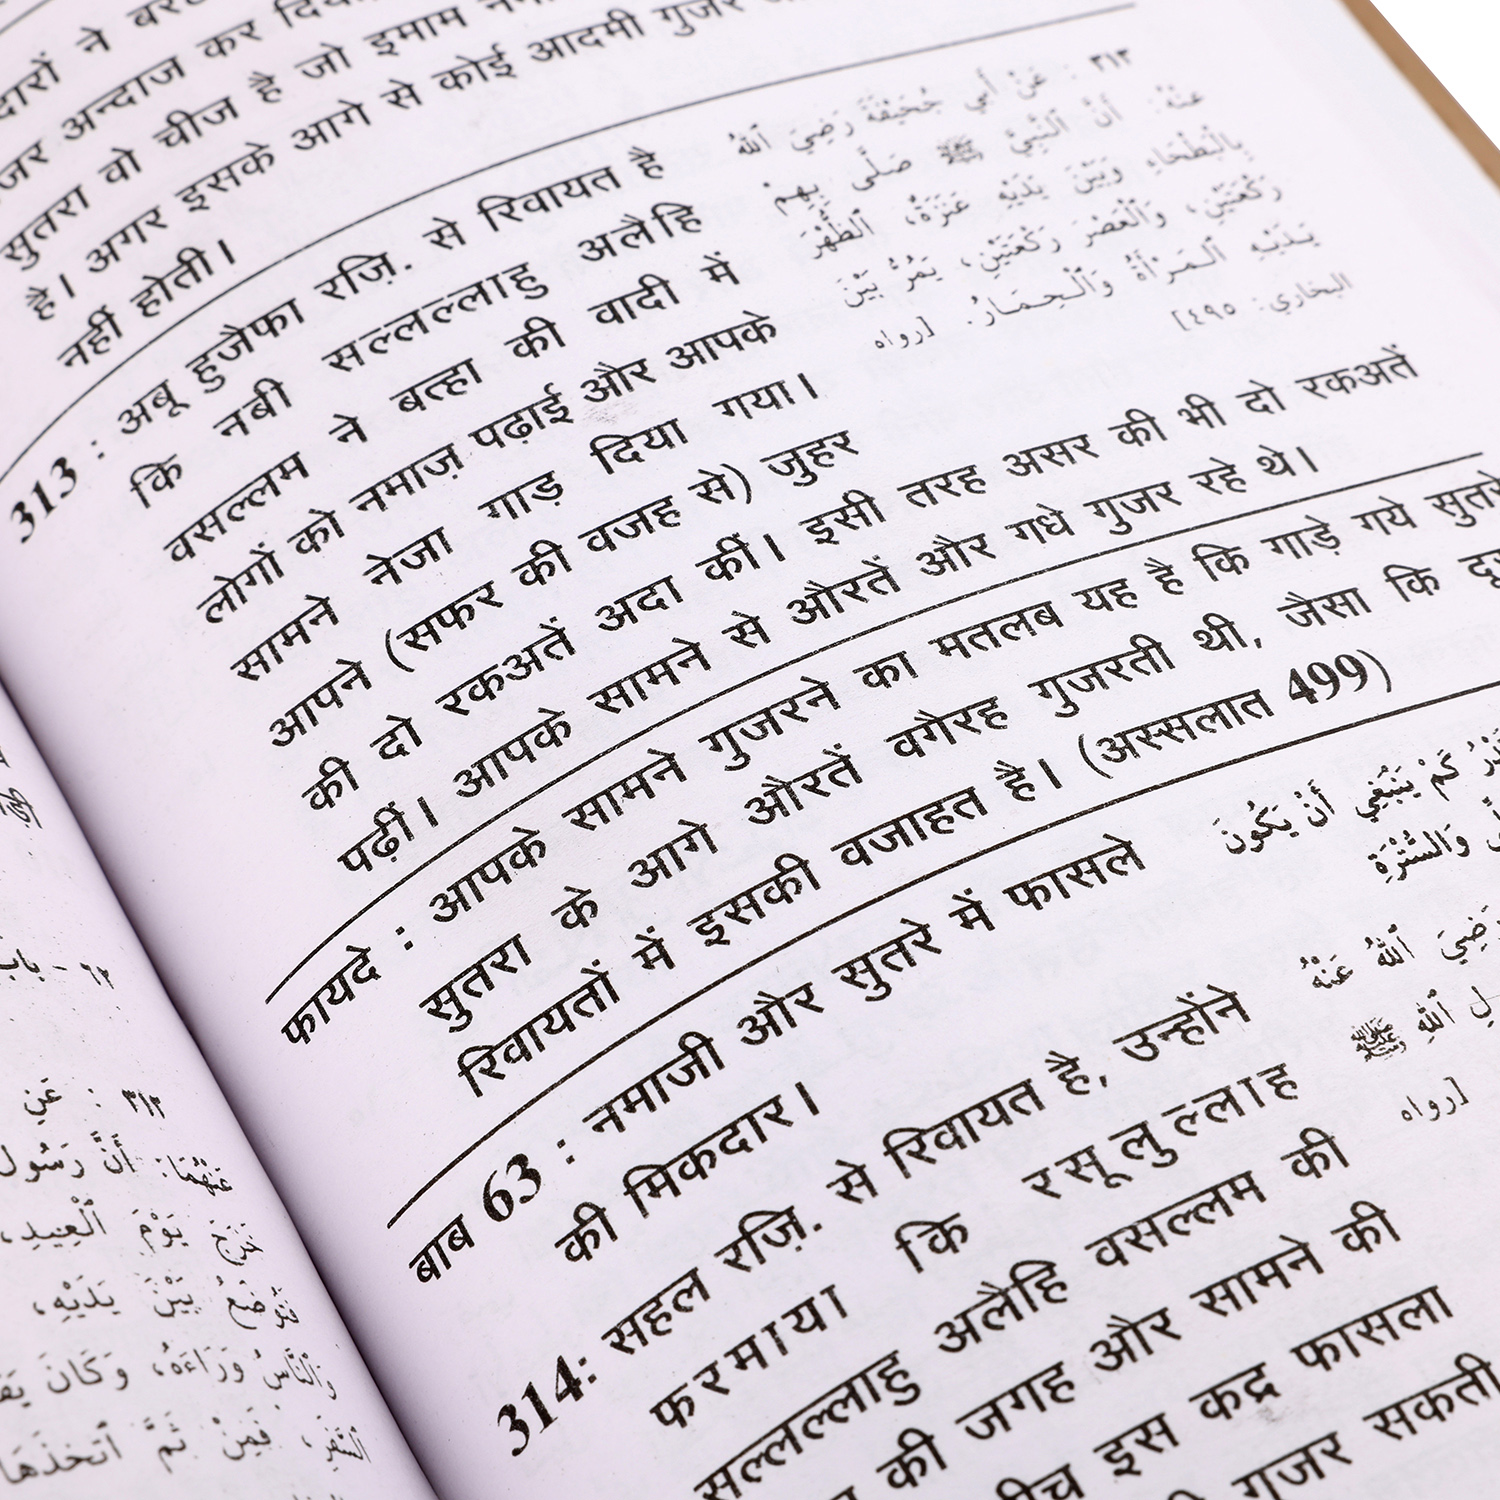 दारों ने
अन्दाज कर
सुतरा वो चीज है जो इमाम
है। अगर इसके आगे से कोई आदमी गुजर
नहीं होती।
313 : अबू हुजैफा रज़ि. से रिवायत है
कि नबी सल्लल्लाहु अलैहि
वसल्लम ने बत्हा की वादी में
लोगों को नमाज़ पढ़ाई और आपके
सामने नेजा गाड़ दिया गया।
आपने (सफर की वजह से) जुहर
की दो रकअतें अदा कीं। इसी तरह असर की भी दो रकअतें
पढ़ीं। आपके सामने से औरतें और गधे गुजर रहे थे।
٣١٣ : عَنْ أَبِي جُحَيْفَةَ رَضِيَ اللهُ
عَنْهُ: أَنَّ النَّبِيَّ ﷺ صَلَّى بِهِمْ
بِالْبَطْحَاءِ وَبَيْنَ يَدَيْهِ عَنَزَةٌ، الظُّهْرَ
رَكْعَتَيْنِ، وَالْعَصْرَ رَكْعَتَيْنِ، يَمُرُّ بَيْنَ
يَدَيْهِ المَرْأَةُ وَالْحِمَارُ. [رواه
البخاري: ٤٩٥]
फायदे : आपके सामने गुजरने का मतलब यह है कि गाड़े गये
सुतरा के आगे औरतें वगैरह गुजरती थी, जैसा कि
रिवायतों में इसकी वजाहत है। (अस्सलात 499)
बाब 63 : नमाजी और सुतरे में फासले
की मिकदार।
كَمْ يَنْبَغِي أَنْ يَكُونَ
وَالسُّتْرَةِ
314: सहल रज़ि. से रिवायत है, उन्होंने
फरमाया कि रसूलुल्लाह
सल्लल्लाहु अलैहि वसल्लम की
की जगह और सामने की
इस कद्र फासला
गुजर सकती
رَضِيَ اللهُ عَنْهُ
اللهِ ﷺ
[رواه
٦٢ - باب
٣١٢ : عَنِ
عَنْهُمَا: أَنَّ رَسُولَ
خَرَجَ يَوْمَ الْعِيدِ،
فَتُوضَعُ بَيْنَ يَدَيْهِ،
وَالنَّاسُ وَرَاءَهُ، وَكَانَ
السَّفَرِ، فَمِنْ ثَمَّ اتَّخَذَهَا